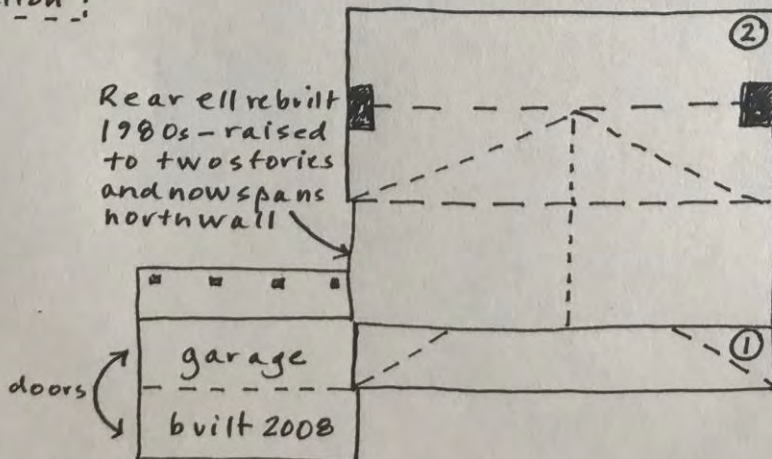 Rear ell rebuilt
1980s - raised
to two stories
and now spans
north wall
②
①
garage
doors
built 2008